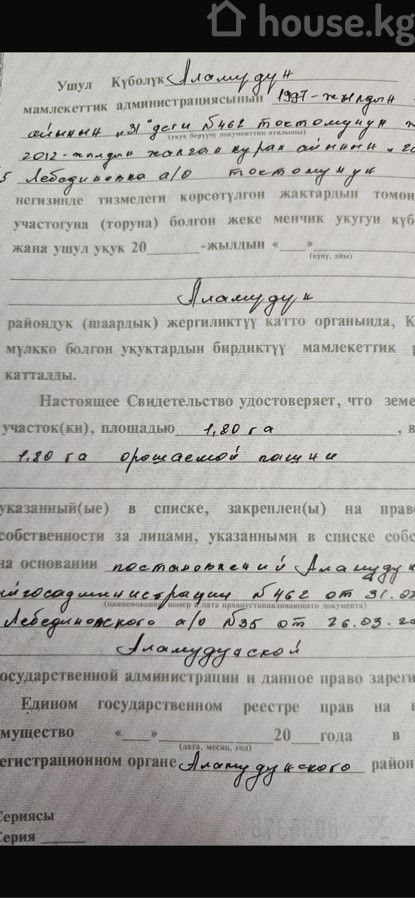 house.kg
Ушул Күбөлүк Аламудун
мамлекеттик администрациясынын 1997-жылдын
айынын "31" деги №462 токтомунун
(укук берүүчү документтин аталышы)
2012-жылдын жалган куран айынын
Лебединовка а/о токтомунун
негизинде тизмедеги көрсөтүлгөн жактардын томон
участогуна (торуна) болгон жеке менчик укугун күб
жана ушул укук 20 -жылдын « »
(күнү, айы)
Аламудун
райондук (шаардык) жергиликтүү катто органында, К
мүлккө болгон укуктардын бирдиктүү мамлекеттик
катталды.
Настоящее Свидетельство удостоверяет, что земе
участок(ки), площадью 1,80 га , в
1.80 га орошаемой пашни
указанный(ые) в списке, закреплен(ы) на прав
собственности за лицами, указанными в списке собс
на основании постановлений Аламуду
госадминистрации №462 от 31.0
(наименование, номер и дата правоустанавливающего документа)
Лебединовского а/о №35 от 26.03.20
Аламудунской
осударственной администрации и данное право зареги
Едином государственном реестре прав на
мущество « » 20 года в
(дата, месяц, год)
егистрационном органе Аламудунского район
Сериясы
Серия